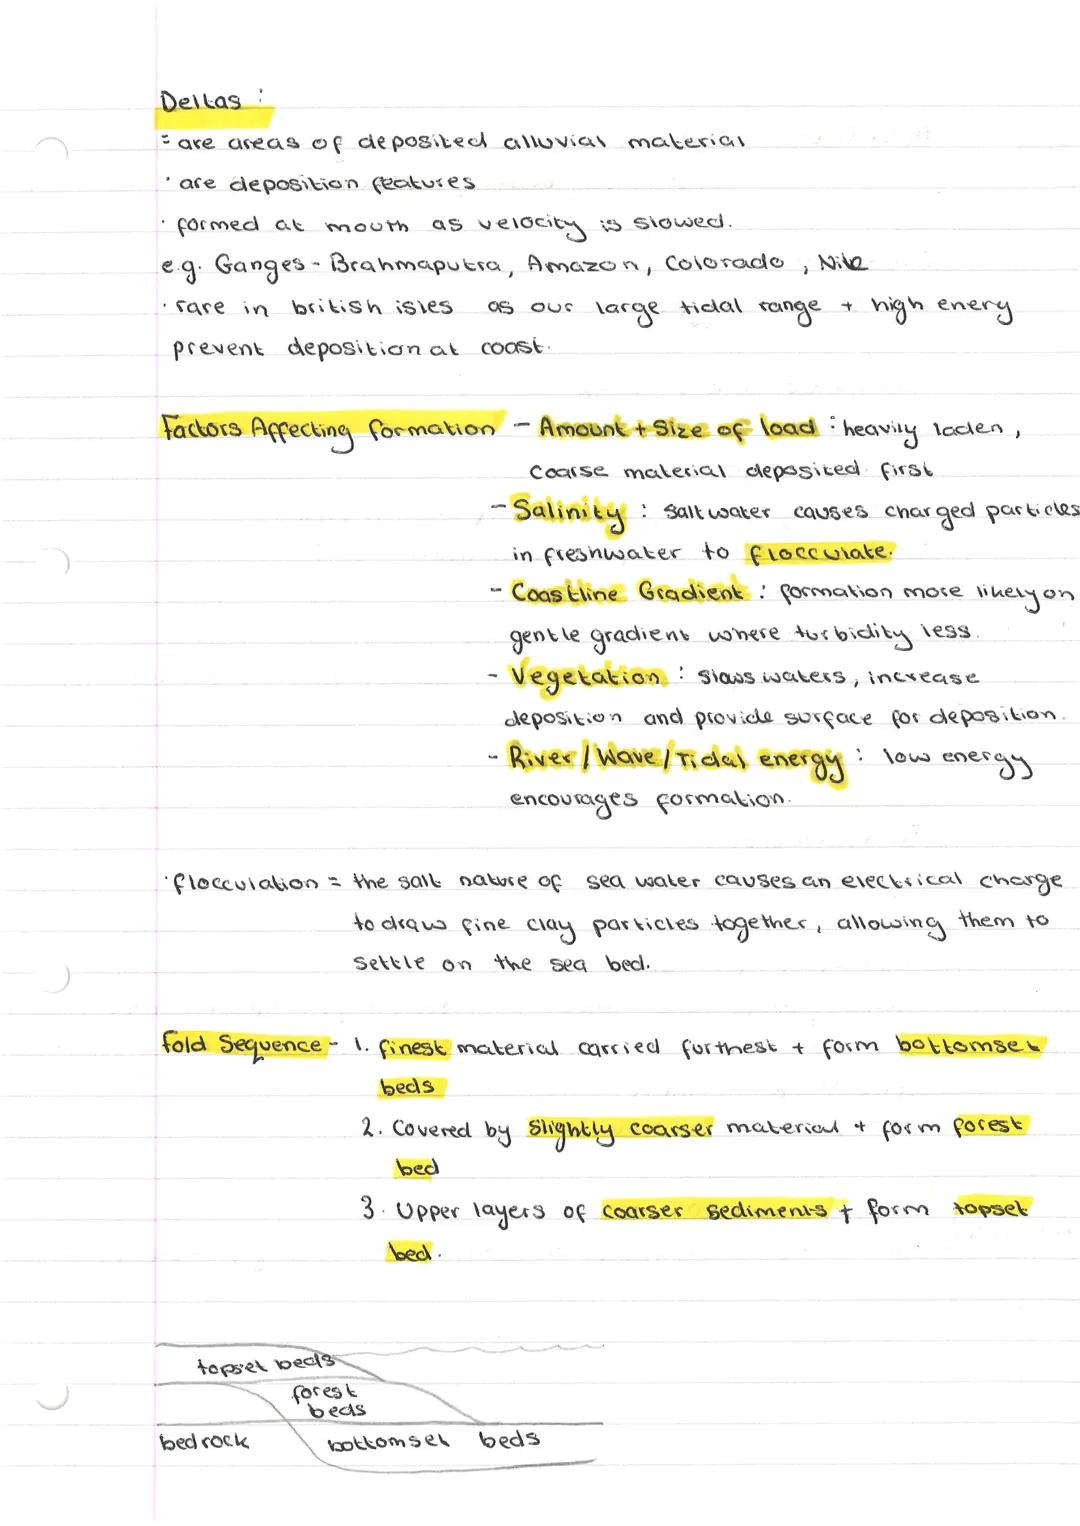 Deltas :
= are areas of deposited alluvial material
· are deposition features
· formed at mouth as velocity is slowed.
e.g. Ganges - Brahmaputra, Amazon, Colorado, Nile
· rare in british isles as our large tidal range + high enery
prevent deposition at coast.
Factors Affecting formation - Amount + Size of load : heavily laden,
coarse material deposited first
- Salinity : salt water causes charged particles
in freshwater to flocculate.
- Coastline Gradient : formation more likely on
gentle gradient where turbidity less.
- Vegetation : slows waters, increase
deposition and provide surface for deposition.
- River / Wave / Tidal energy : low energy
encourages formation.
· flocculation = the salt nature of sea water causes an electrical charge
to draw fine clay particles together, allowing them to
settle on the sea bed.
fold Sequence - 1. finest material carried furthest + form bottomset
beds
2. Covered by slightly coarser material + form forest
bed
3. Upper layers of coarser sediments + form topset
bed.
topset beds
forest
beds
bedrock bottomset beds